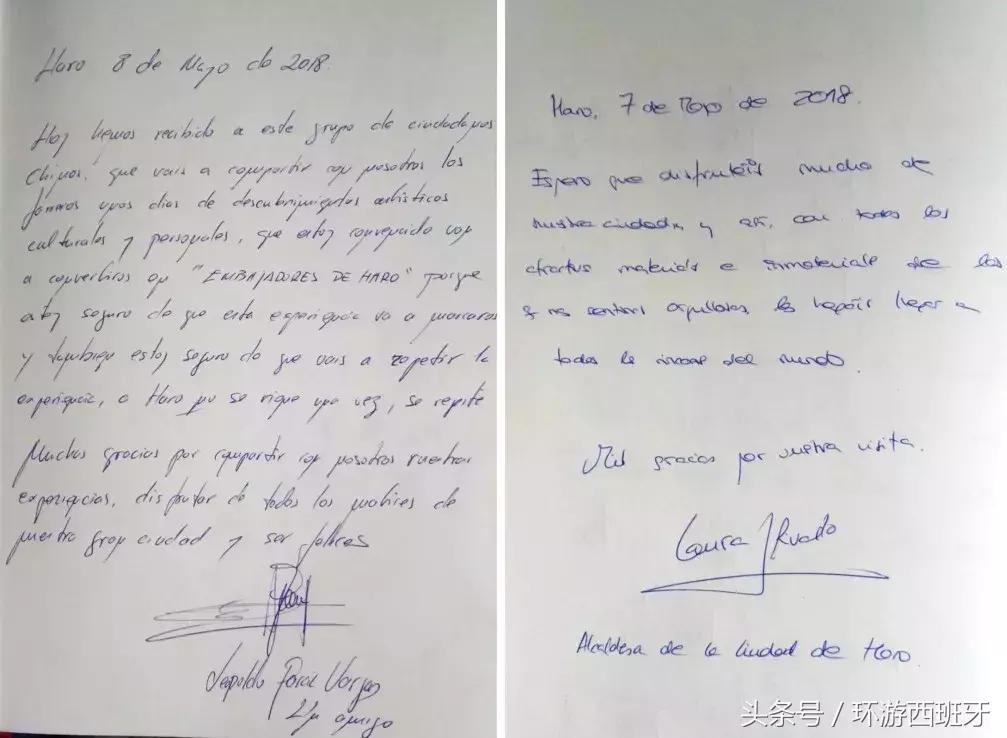 Haro 8 de Mayo de 2018.
Hoy hemos recibido a este grupo de ciudadanos
chinos, que vais a compartir con nosotros los
unos dias de descubrimientos artísticos
culturales y personales, que estoy convencido van
a convertiros en "EMBAJADORES DE HARO" porque
estoy seguro de que esta experiencia va a marcaros
y tambien estoy seguro de que vais a repetir la
experiencia, a Haro no se viene una vez, se repite
Muchas gracias por compartir con nosotros vuestras
experiencias, disfrutar de todos los matices de
nuestra gran ciudad y ser felices
Leopoldo Vargas
Un amigo
Haro, 7 de Mayo de 2018.
Espero que disfrutéis mucho de
nuestra ciudad, y con todos los
materiales e inmateriales de los
llegar a
todos los del mundo.
Mil gracias por vuestra visita.
Laura Rivado
Alcaldesa de la Ciudad de Haro
头条号 / 环游西班牙